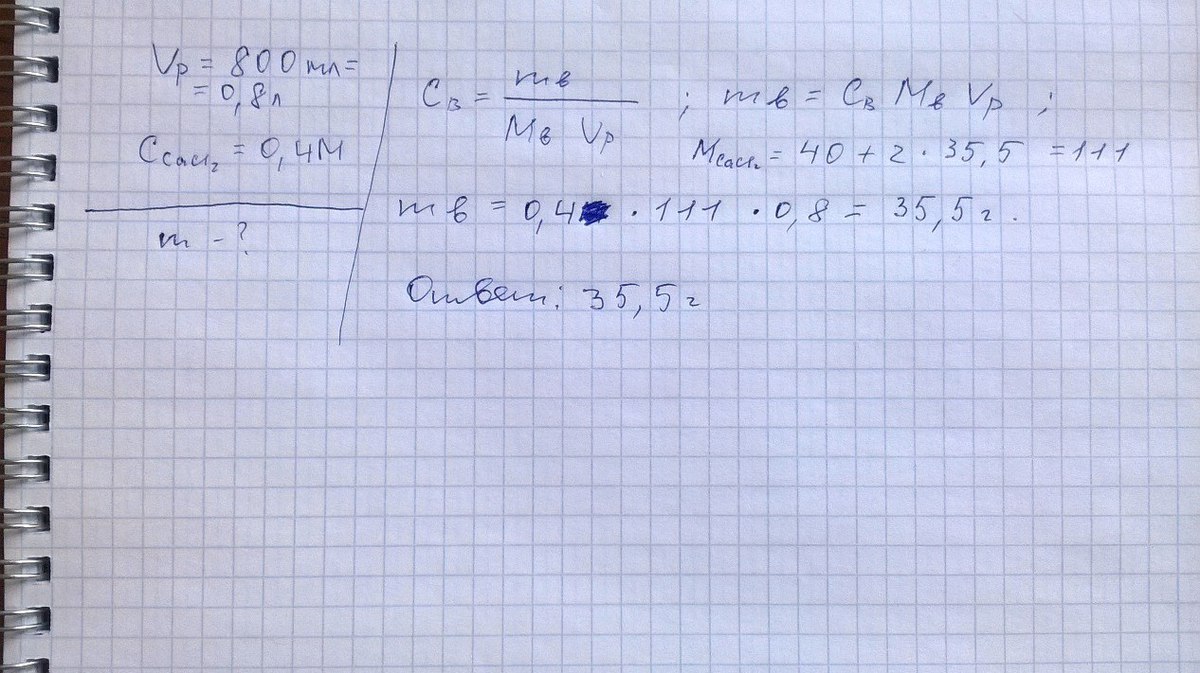 Vр = 800 мл =
= 0,8 л
CCaCl₂ = 0,4М
m - ?
Cв = mв / Mв Vр ; mв = Cв Mв Vр ;
MCaCl₂ = 40 + 2 · 35,5 = 111
mв = 0,4 · 111 · 0,8 = 35,5 г.
Ответ: 35,5 г